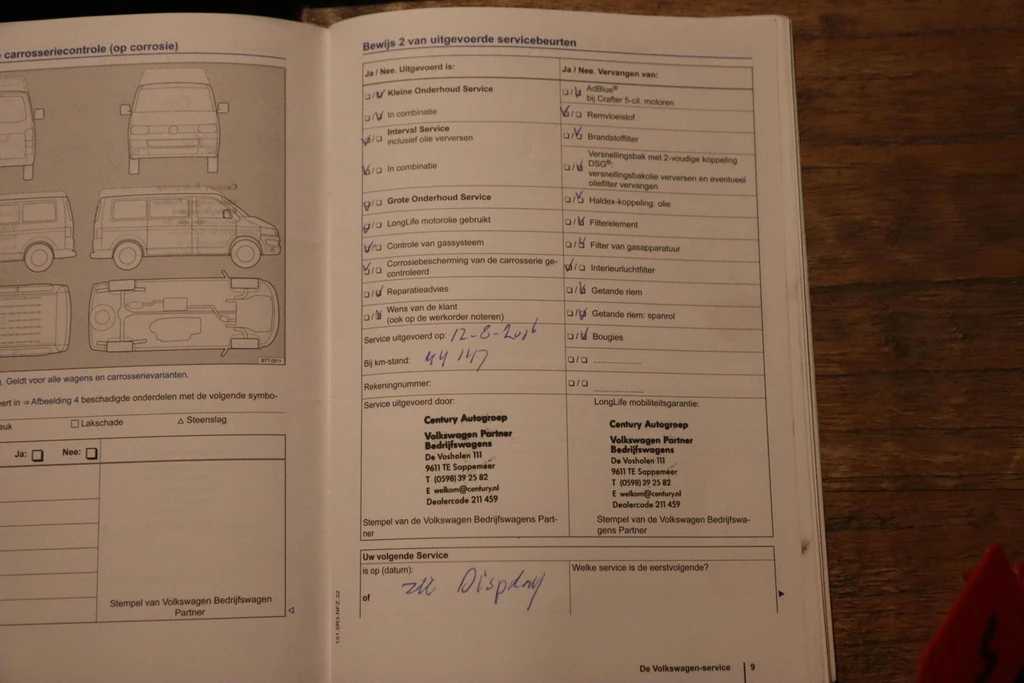 carrosseriecontrole (op corrosie)
BTT-0511
Geldt voor alle wagens en carrosserievarianten.
eert in ⇒ Afbeelding 4 beschadigde onderdelen met de volgende symbo-
euk
☐ Lakschade
△ Steenslag
Ja: ☐ Nee: ☐
Stempel van Volkswagen Bedrijfswagen
Partner
Bewijs 2 van uitgevoerde servicebeurten
Ja / Nee. Uitgevoerd is:
❑/❑ Kleine Onderhoud Service
❑/❑ In combinatie
❑/❑ Interval Service
inclusief olie verversen
❑/❑ In combinatie
❑/❑ Grote Onderhoud Service
❑/❑ LongLife motorolie gebruikt
❑/❑ Controle van gassysteem
❑/❑ Corrosiebescherming van de carrosserie ge-
controleerd
❑/❑ Reparatieadvies
❑/❑ Wens van de klant
(ook op de werkorder noteren)
Service uitgevoerd op: 12-8-2016
Bij km-stand: 44 147
Rekeningnummer:
Ja / Nee. Vervangen van:
❑/❑ AdBlue®
bij Crafter 5-cil. motoren
❑/❑ Remvloeistof
❑/❑ Brandstoffilter
❑/❑ Versnellingsbak met 2-voudige koppeling
DSG®:
versnellingsbakolie verversen en eventueel
oliefilter vervangen
❑/❑ Haldex-koppeling: olie
❑/❑ Filterelement
❑/❑ Filter van gasapparatuur
❑/❑ Interieurluchtfilter
❑/❑ Getande riem
❑/❑ Getande riem: spanrol
❑/❑ Bougies
❑/❑ ....................
❑/❑ ....................
Service uitgevoerd door:
Century Autogroep
Volkswagen Partner
Bedrijfswagens
De Vosholen 111
9611 TE Sappemeer
T (0598) 39 25 82
E welkom@century.nl
Dealercode 211 459
Stempel van de Volkswagen Bedrijfswagens Part-
ner
LongLife mobiliteitsgarantie:
Century Autogroep
Volkswagen Partner
Bedrijfswagens
De Vosholen 111
9611 TE Sappemeer
T (0598) 39 25 82
E welkom@century.nl
Dealercode 211 459
Stempel van de Volkswagen Bedrijfswa-
gens Partner
Uw volgende Service
is op (datum):
zie Display
of
Welke service is de eerstvolgende?
131.5R3.NFZ.32
De Volkswagen-service 9